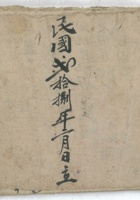 民國貳拾捌年二月日立